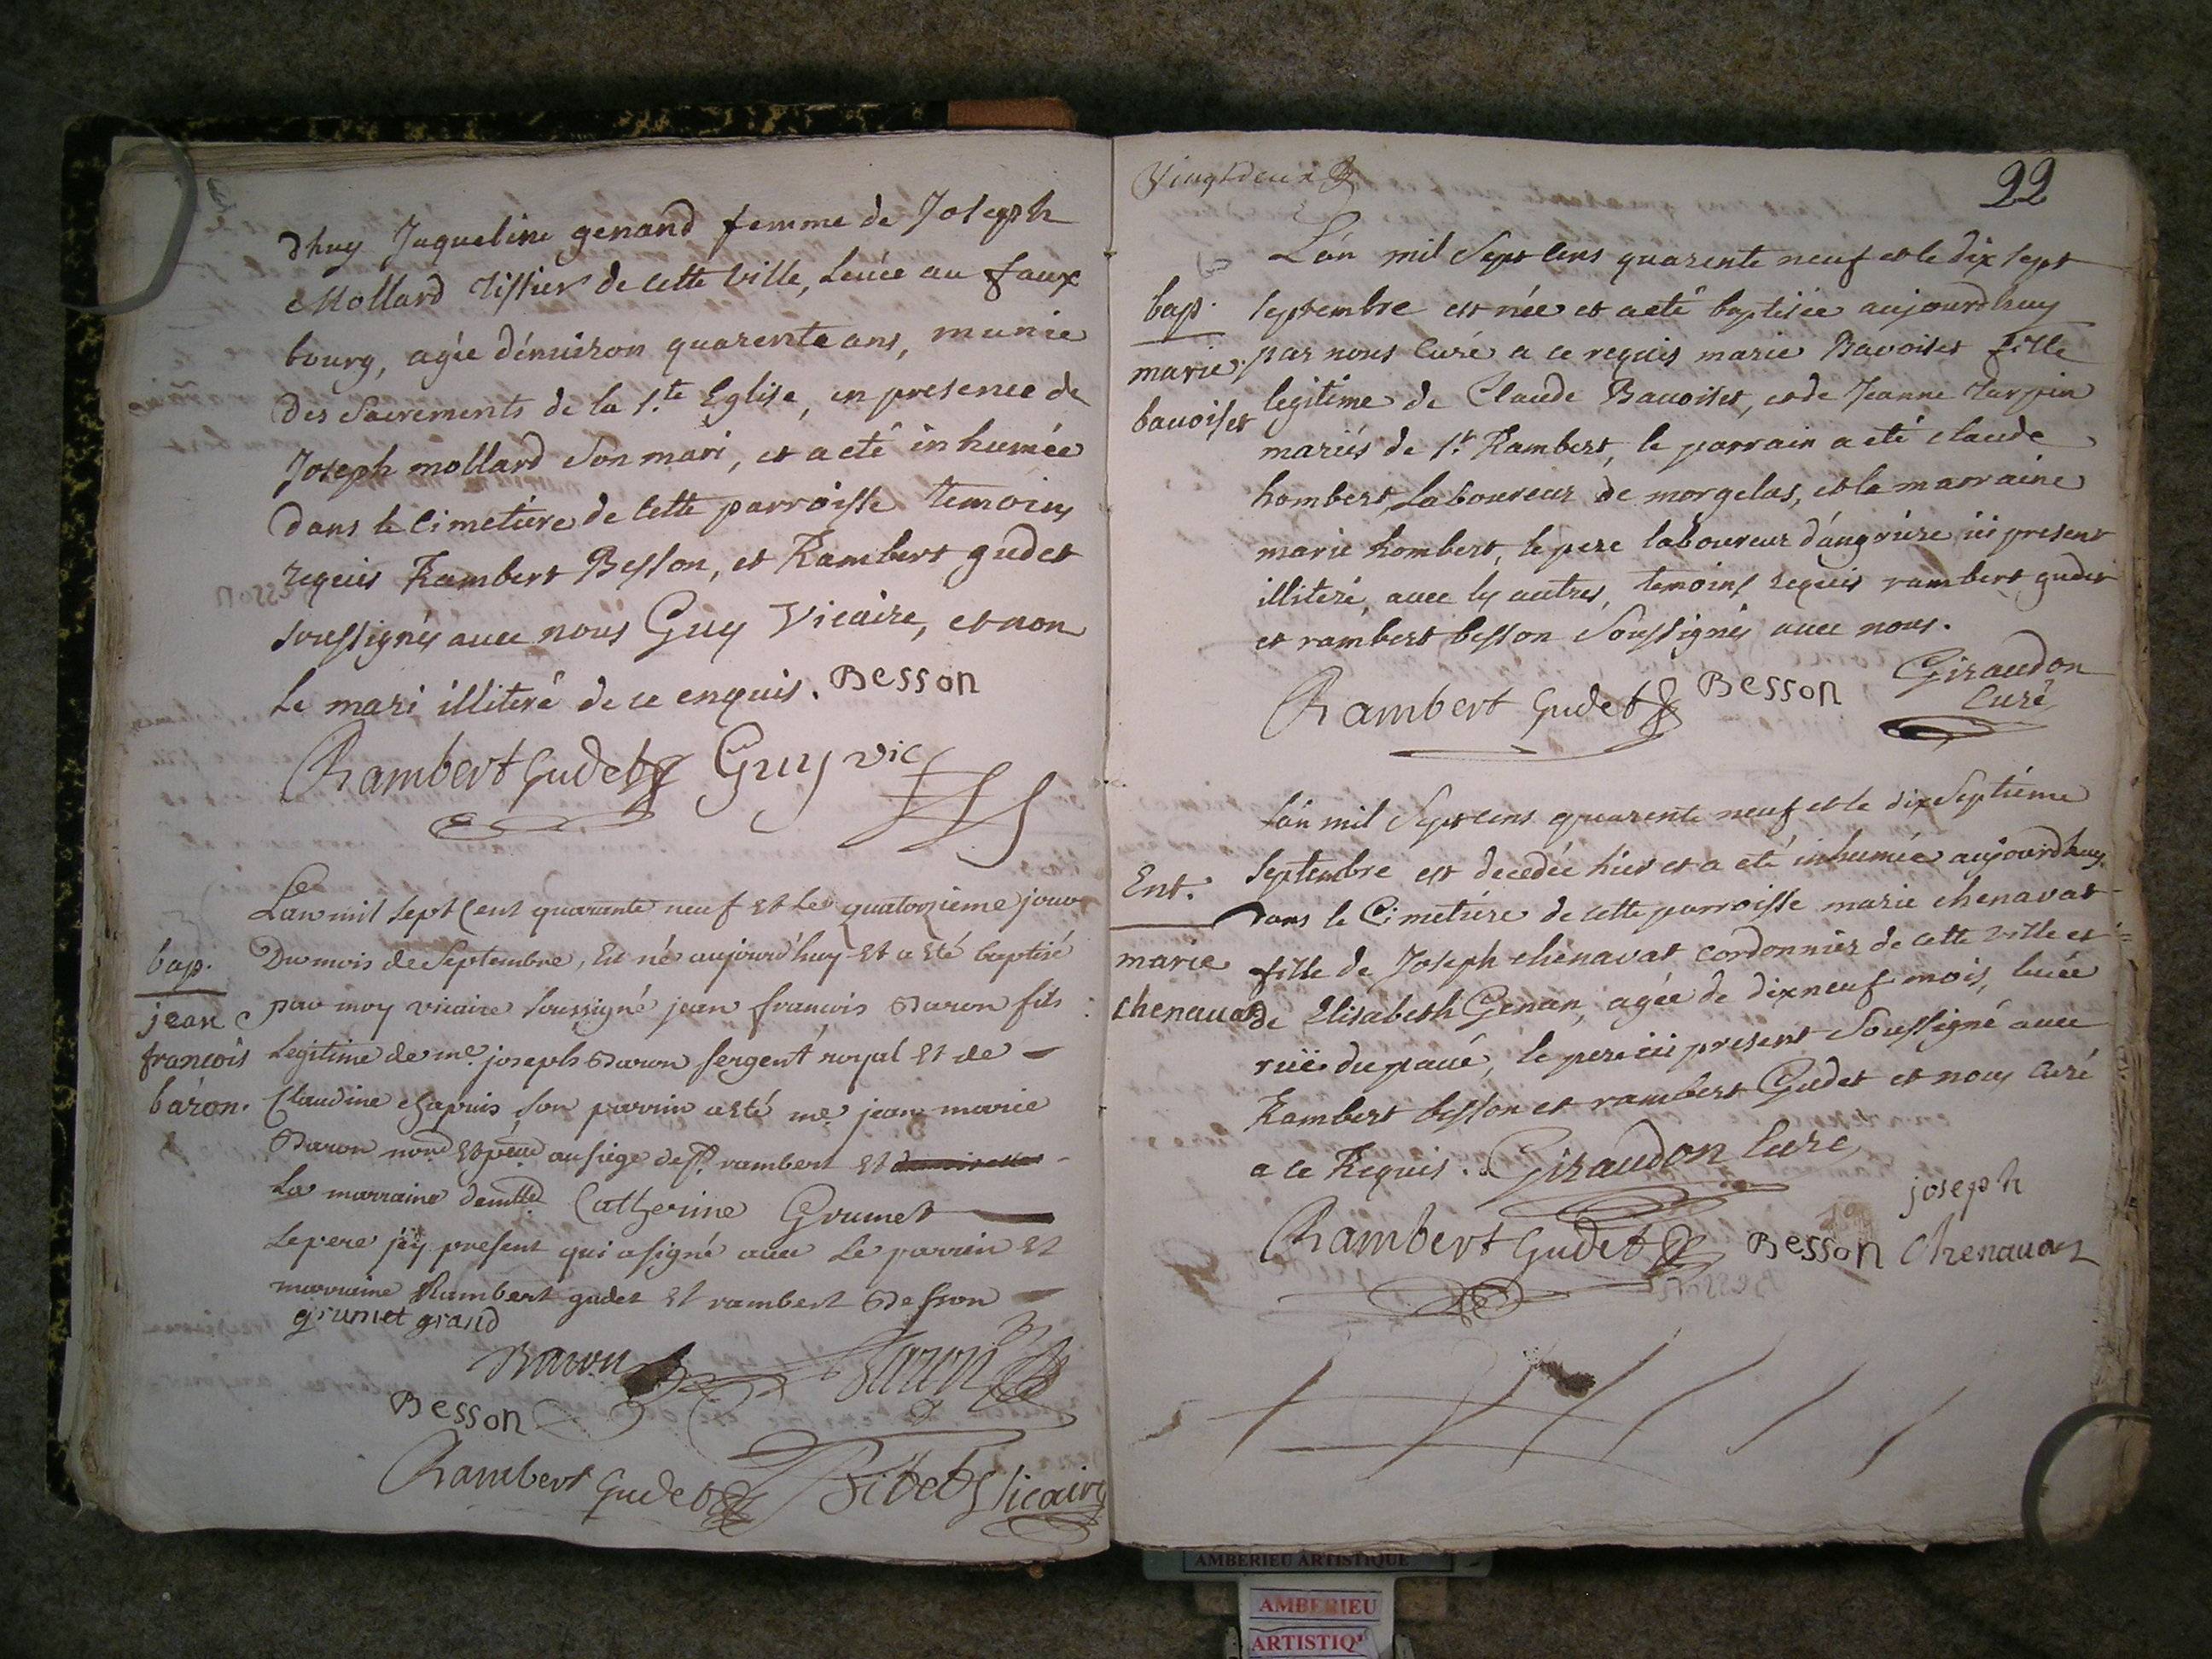 dhuy Jaqueline genand femme de Joseph
Mollard tissier de cette ville, leuée au faux
bourg, agée d'enuiron quarente ans, munie
des Sacrements de la s.te Eglise, en presence de
Joseph mollard son mari, et a eté inhumée
dans le cimetiere de cette parroisse temoins
requis Rambert Besson, et Rambert gudet
soussignés auec nous Guy Vicaire, et non
le mari illiteré de ce enquis. Besson
Rambert Gudet Guy vic
L'an mil sept cent quarante neuf et le quatorzieme jour
bap. Du mois de Septembre, Est né aujourd'huy et a eté baptisé
jean par moy vicaire soussigné jean francois Baron fils
francois Legitime de me. joseph Baron sergent royal et de
baron. Claudine chapuis, son parrin a eté me. jean marie
Baron au siege de st. rambert et
La marraine Catherine Grumet
Le pere present qui a signé auec le parrin et
marraine Rambert gudet et rambert Besson
grumet grand
Baron Baron
Besson
Rambert Gudet Vicaire
Vingtdeux 22
L'an mil sept cens quarente neuf et le dix sept
bap. septembre est née et a eté baptisée aujourdhuy
marie par nous curé a ce requis marie Bavoiset fille
bavoiset legitime de Claude Bavoiset, et de Jeanne turpin
mariés de st. Rambert, le parrain a eté claude
hombert, laboureur de morgelas, et la marraine
marie hombert, le pere laboureur d'angriere ici present
illiteré, auec les autres, temoins requis rambert gudet
et rambert besson Soussignés auec nous.
Rambert Gudet Besson Giraudon
Curé
L'an mil Sept cens quarente neuf et le dix Septiéme
Ent. Septembre est decedée hier et a eté inhumée aujourdhuy
dans le Cimetiére de cette parroisse marie chenavat
marie fille de Joseph chenavat cordonnier de cette ville et
chenauat de Elisabeth Genan, agée de dixneuf mois, leuée
rüe du paué, le pere ici present Soussigné auec
Rambert besson et rambert Gudet et nous curé
a ce Requis. Giraudon Curé
joseph
Rambert Gudet Besson Chenauat
AMBERIEU ARTISTIQUE
AMBERIEU
ARTISTIQ